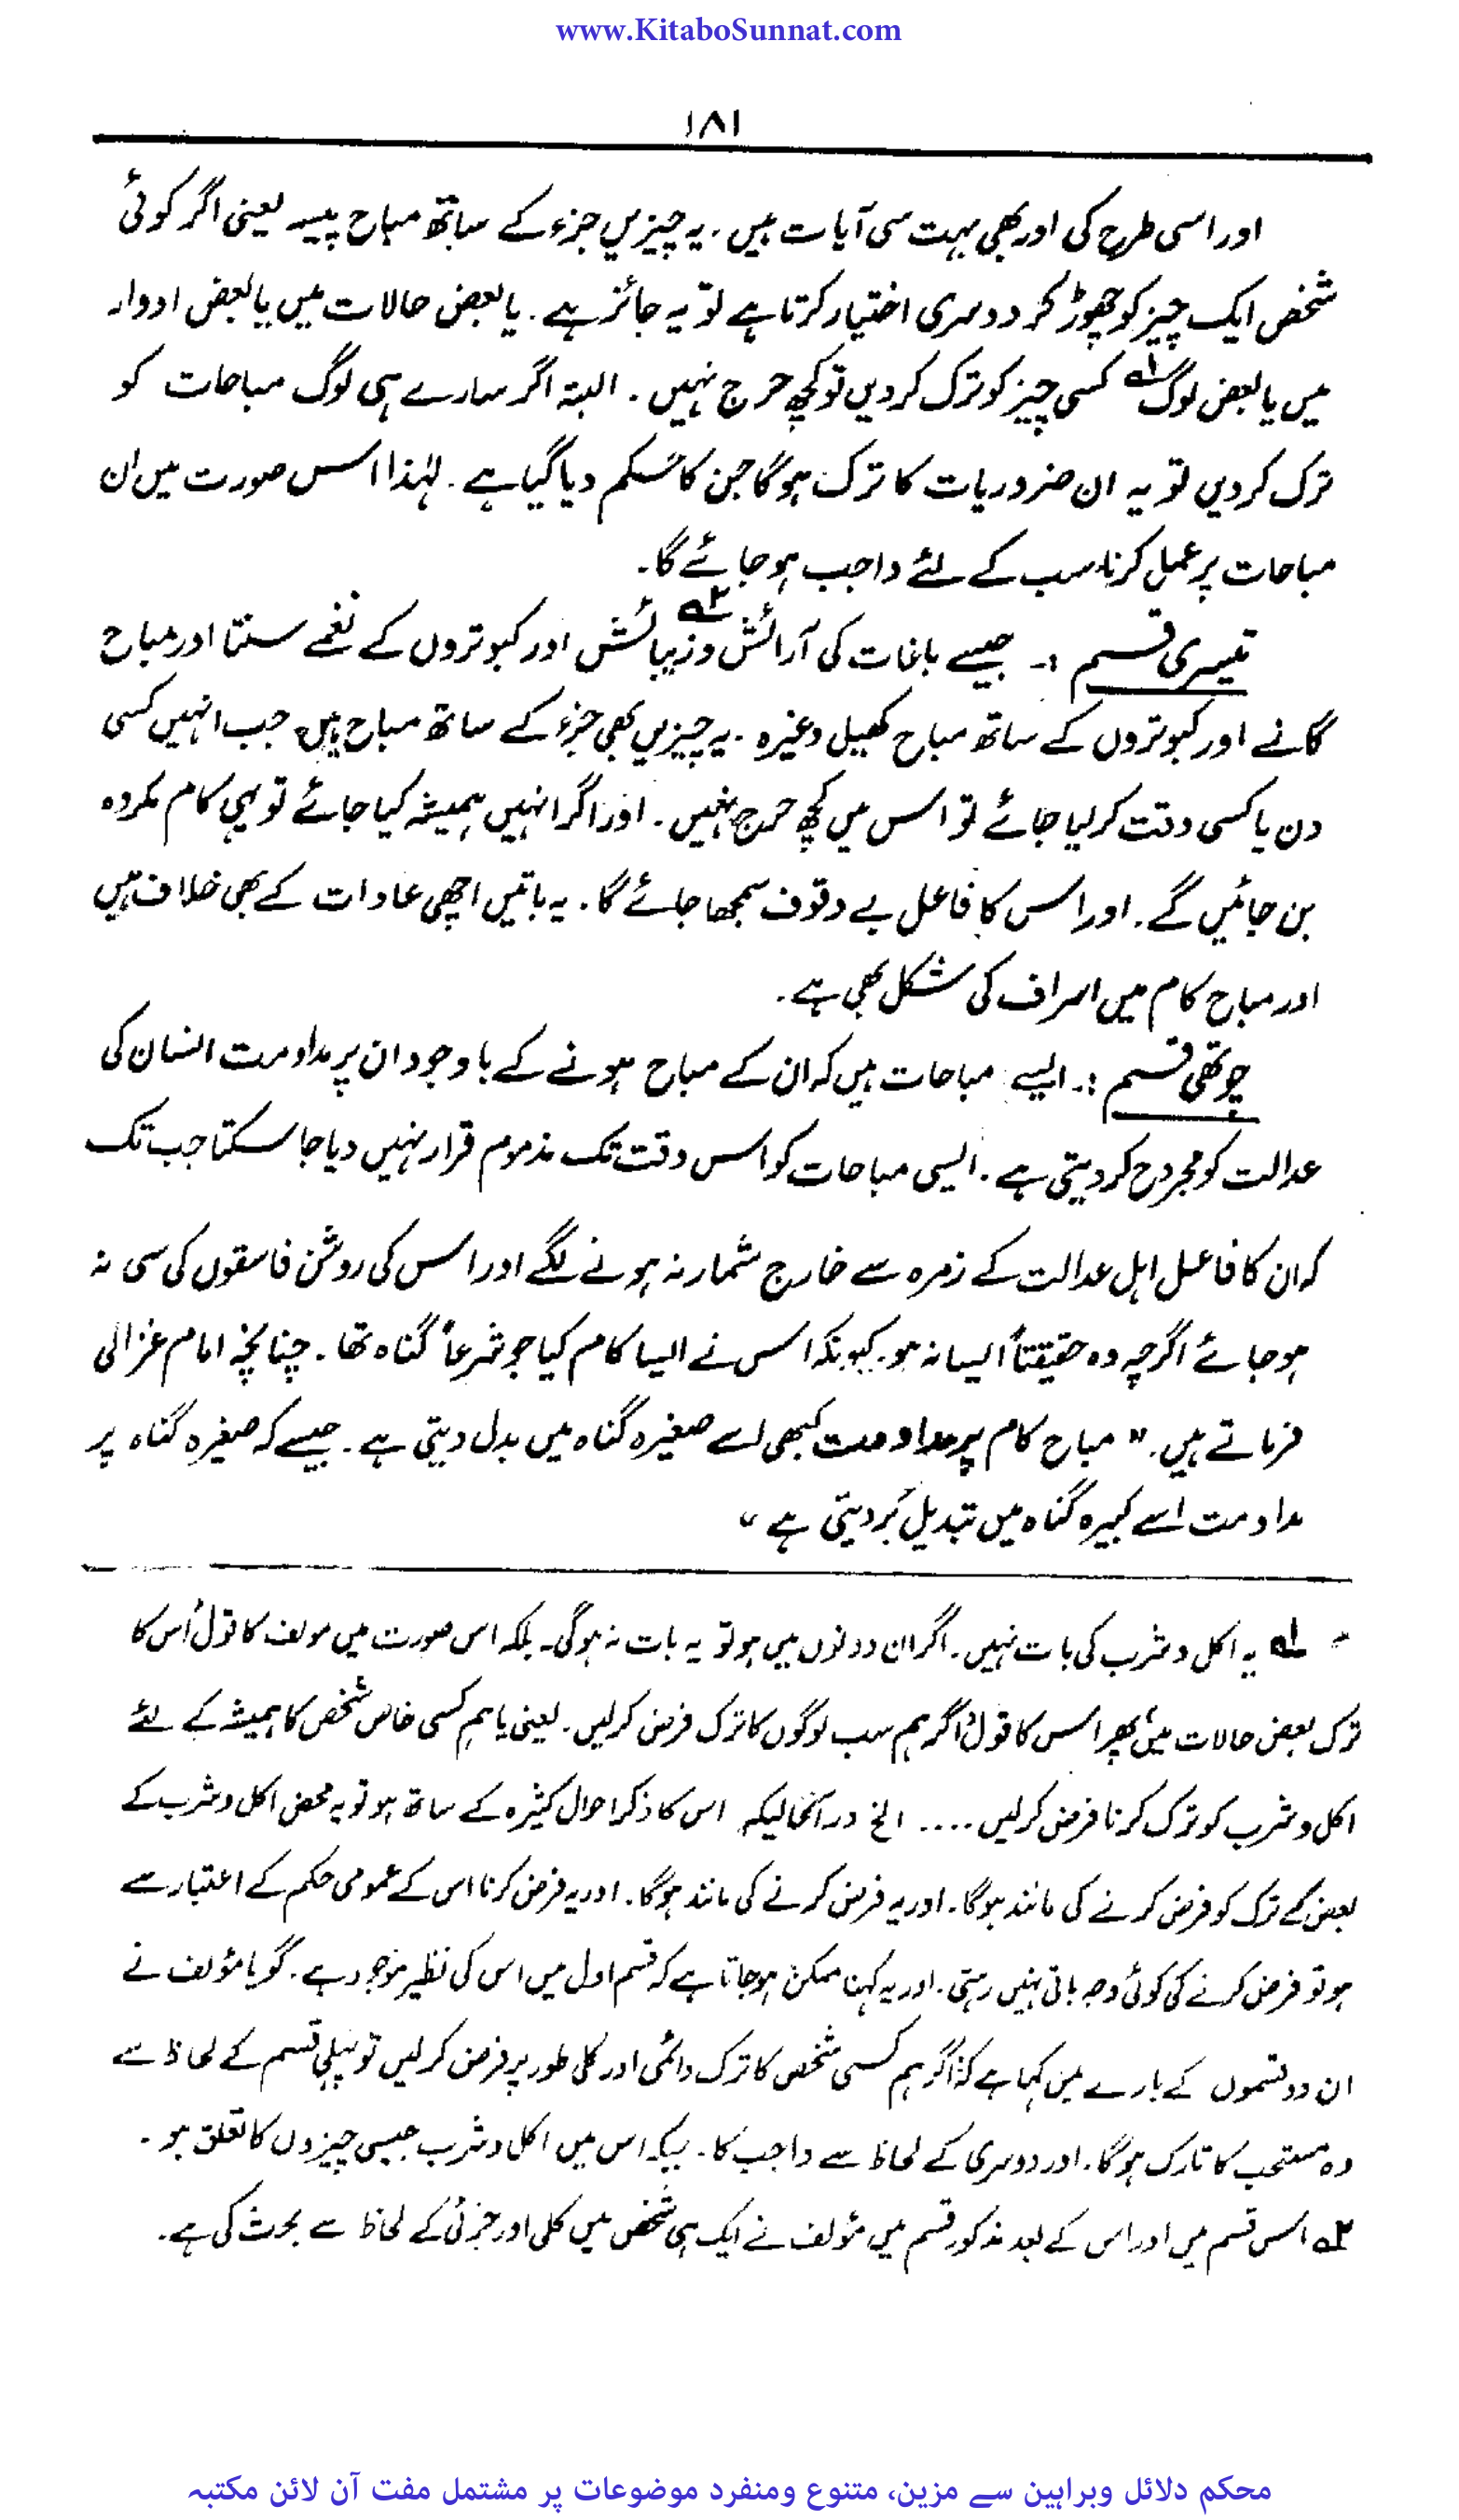 www.KitaboSunnat.com
۱۸۱
اور اسی طرح کی اور بھی بہت سی آیات ہیں ۔ یہ چیزیں جزء کے ساتھ مباح ہیں۔ یعنی اگر کوئی
شخص ایک چیز کو چھوڑ کر دوسری اختیار کرتا ہے تو یہ جائز ہے ۔ یا بعض حالات میں یا بعض ادوار
میں یا بعض لوگ ۱؎ کسی چیز کو ترک کر دیں تو کچھ حرج نہیں ۔ البتہ اگر سارے ہی لوگ مباحات کو
ترک کر دیں تو یہ ان ضروریات کا ترک ہوگا جن کا حکم دیا گیا ہے ۔ لہٰذا اس صورت میں ان
مباحات پر عمل کرنا سب کے لئے واجب ہو جائے گا ۔
تیسری قسم :۔ جیسے باغات کی آرائش و زیبائش ۲؎ اور کبوتروں کے نغمے سننا اور مباح
گانے اور کبوتروں کے ساتھ مباح کھیل وغیرہ ۔ یہ چیزیں بھی جزء کے ساتھ مباح ہیں۔ جب انہیں کسی
دن یا کسی وقت کر لیا جائے تو اس میں کچھ حرج نہیں ۔ اور اگر انہیں ہمیشہ کیا جائے تو یہی کام مکروہ
بن جائیں گے ۔ اور اس کا فاعل بے وقوف سمجھا جائے گا ۔ یہ باتیں اچھی عادات کے بھی خلاف ہیں
اور مباح کام میں اسراف کی شکل بھی ہے ۔
چوتھی قسم :۔ ایسے مباحات ہیں کہ ان کے مباح ہونے کے باوجود ان پر مداومت انسان کی
عدالت کو مجروح کر دیتی ہے ۔ ایسی مباحات کو اس وقت تک مذموم قرار نہیں دیا جا سکتا جب تک
کہ ان کا فاعل اہل عدالت کے زمرہ سے خارج شمار نہ ہونے لگے اور اس کی روش فاسقوں کی سی نہ
ہو جائے اگرچہ وہ حقیقتاً ایسا نہ ہو۔ کیونکہ اس نے ایسا کام کیا جو شرعاً گناہ تھا ۔ چنانچہ امام غزالی
فرماتے ہیں۔ " مباح کام پر مداومت کبھی اسے صغیرہ گناہ میں بدل دیتی ہے ۔ جیسے کہ صغیرہ گناہ پر
مداومت اسے کبیرہ گناہ میں تبدیل کر دیتی ہے "
۱؎ یہ اکل و شرب کی بات نہیں ۔ اگر ان دونوں میں ہو تو یہ بات نہ ہوگی۔ بلکہ اس صورت میں مولف کا قول اُس کا
ترک بعض حالات میں، پھر اس کا قول، اگر ہم سب لوگوں کا ترک فرض کر لیں۔ یعنی یا ہم کسی خاص شخص کا ہمیشہ کے لئے
اکل و شرب کو ترک کرنا فرض کر لیں .... الخ درآنحالیکہ اس کا ذکر احوال کثیرہ کے ساتھ ہو تو یہ محض اکل و شرب کے
بعض کے ترک کو فرض کرنے کی مانند ہوگا۔ اور یہ فرض کرنے کی مانند ہوگا۔ اور یہ فرض کرنا اس کے عمومی حکم کے اعتبار سے
ہو تو فرض کرنے کی کوئی وجہ باقی نہیں رہتی۔ اور یہ کہنا ممکن ہو جاتا ہے کہ قسم اول میں اس کی نظیر موجود ہے ۔ گویا مؤلف نے
ان دو قسموں کے بارے میں کہا ہے کہ اگر ہم کسی شخص کا ترک دائمی اور کلی طور پر فرض کر لیں تو پہلی قسم کے لحاظ سے
وہ مستحب کا تارک ہوگا۔ اور دوسری کے لحاظ سے واجب کا۔ جبکہ اس میں اکل و شرب جیسی چیزوں کا تعلق ہو ۔
۲؎ اس قسم میں اور اس کے بعد مذکور قسم میں مؤلف نے ایک ہی شخص میں کلی اور جزئی کے لحاظ سے بحث کی ہے ۔
محکم دلائل وبراہین سے مزین، متنوع ومنفرد موضوعات پر مشتمل مفت آن لائن مکتبہ